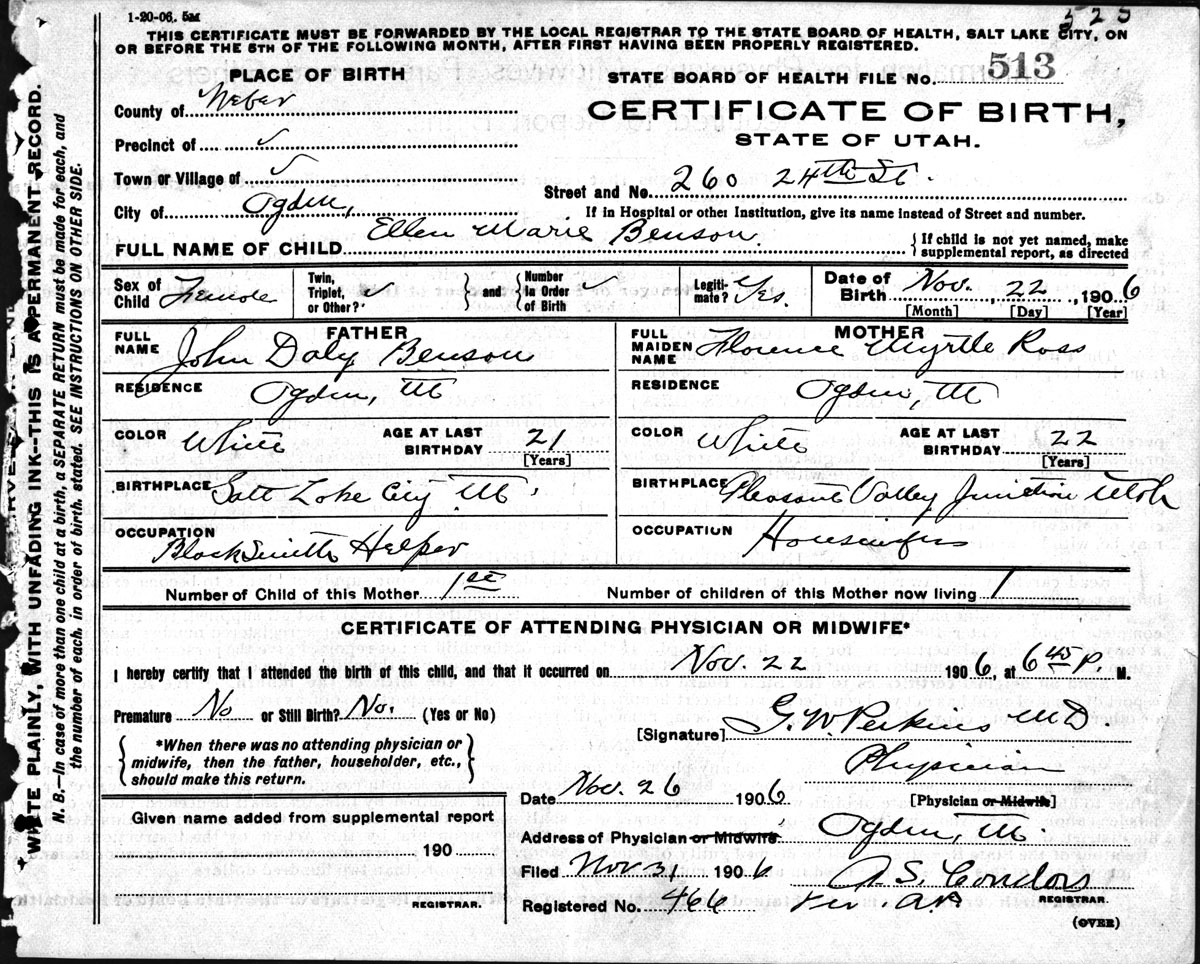 1-20-06. 5M
525
THIS CERTIFICATE MUST BE FORWARDED BY THE LOCAL REGISTRAR TO THE STATE BOARD OF HEALTH, SALT LAKE CITY, ON
OR BEFORE THE 5TH OF THE FOLLOWING MONTH, AFTER FIRST HAVING BEEN PROPERLY REGISTERED.
PLACE OF BIRTH
STATE BOARD OF HEALTH FILE NO. 513
County of Weber
CERTIFICATE OF BIRTH,
STATE OF UTAH.
Precinct of ✓
Town or Village of ✓
Street and No. 260 24th St.
City of Ogden,
If in Hospital or other Institution, give its name instead of Street and number.
FULL NAME OF CHILD Ellen Marie Benson.
If child is not yet named, make
supplemental report, as directed
Sex of
Child Female
Twin,
Triplet,
or Other? ✓
and
Number
in Order
of Birth ✓
Legiti-
mate? Yes.
Date of
Birth Nov. 22, 1906
[Month] [Day] [Year]
FATHER
FULL
NAME John Daly Benson
MOTHER
FULL
MAIDEN
NAME Florence Myrtle Ross
RESIDENCE Ogden, Ut
RESIDENCE Ogden, Ut
COLOR White AGE AT LAST
BIRTHDAY 21
[Years]
COLOR White AGE AT LAST
BIRTHDAY 22
[Years]
BIRTHPLACE Salt Lake City Ut.
BIRTHPLACE Pleasant Valley Junction Utah
OCCUPATION
BlackSmith Helper
OCCUPATION
Housewife
Number of Child of this Mother 1st
Number of children of this Mother now living 1
CERTIFICATE OF ATTENDING PHYSICIAN OR MIDWIFE*
I hereby certify that I attended the birth of this child, and that it occurred on Nov. 22 1906, at 6 45 P. M.
Premature No or Still Birth? No. (Yes or No)
[Signature] G. W. Perkins MD.
*When there was no attending physician or
midwife, then the father, householder, etc.,
should make this return.
Physician
[Physician or Midwife]
Date Nov. 26 1906
Given name added from supplemental report
190
REGISTRAR.
Address of Physician or Midwife Ogden, Ut.
Filed Nov 31 1906
Registered No. 466
A. S. Condon
REGISTRAR.
(OVER)
* WRITE PLAINLY, WITH UNFADING INK--THIS IS A PERMANENT RECORD.
N. B.—In case of more than one child at a birth, a SEPARATE RETURN must be made for each, and
the number of each, in order of birth, stated. SEE INSTRUCTIONS ON OTHER SIDE.